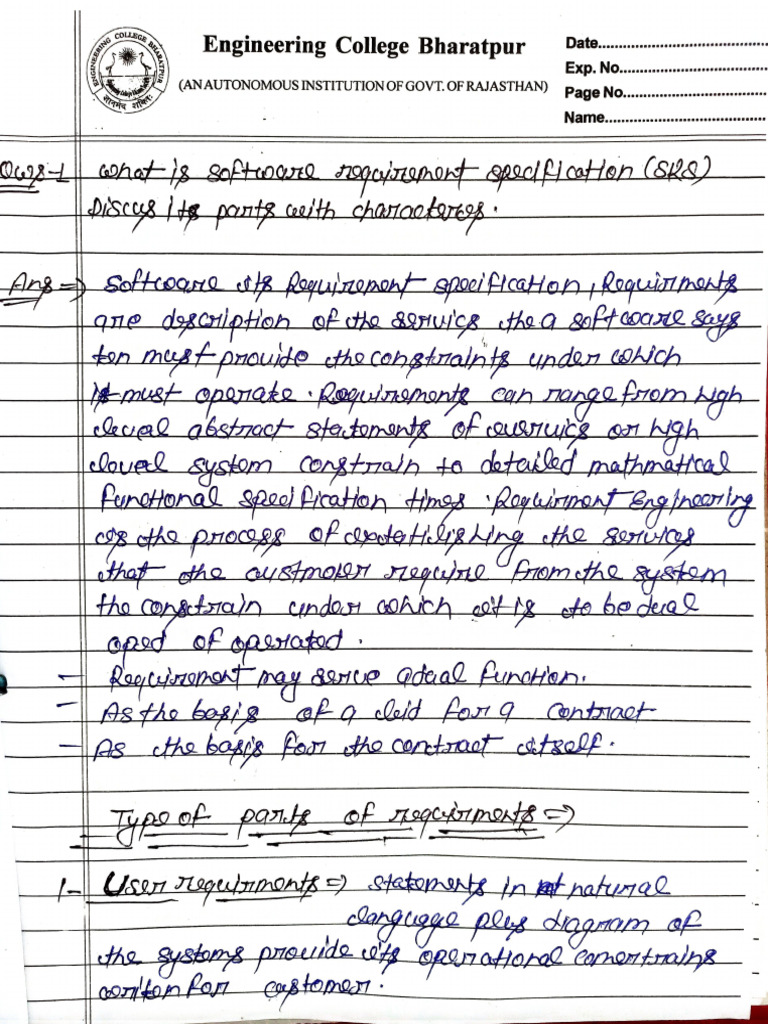 ENGINEERING COLLEGE BHARATPUR
Engineering College Bharatpur
(AN AUTONOMOUS INSTITUTION OF GOVT. OF RAJASTHAN)
Date
Exp. No
Page No
Name
Ques-1 What is software requirement specification (SRS)
Discus its parts with characteres.
Ans => Software its Requirement specification, Requirments
are description of the servics the a software says
ten must provide the constraints under which
it must operate. Requirements can range from high
level abstract statements of or high
level system constrain to detailed mathmatical
functional specification times. Requirment Engineering
is the process of the services
that the custmoer require from the system
the constrain under which it is to be
oped of operated.
- Requirement may serve a dual function.
- As the basis of a for a contract
- As the basis for the contract itself.
Type of parts of requirments =>
1- User requirments => statements in natural
language plus diagram of
the systems provide its operational
for customer.